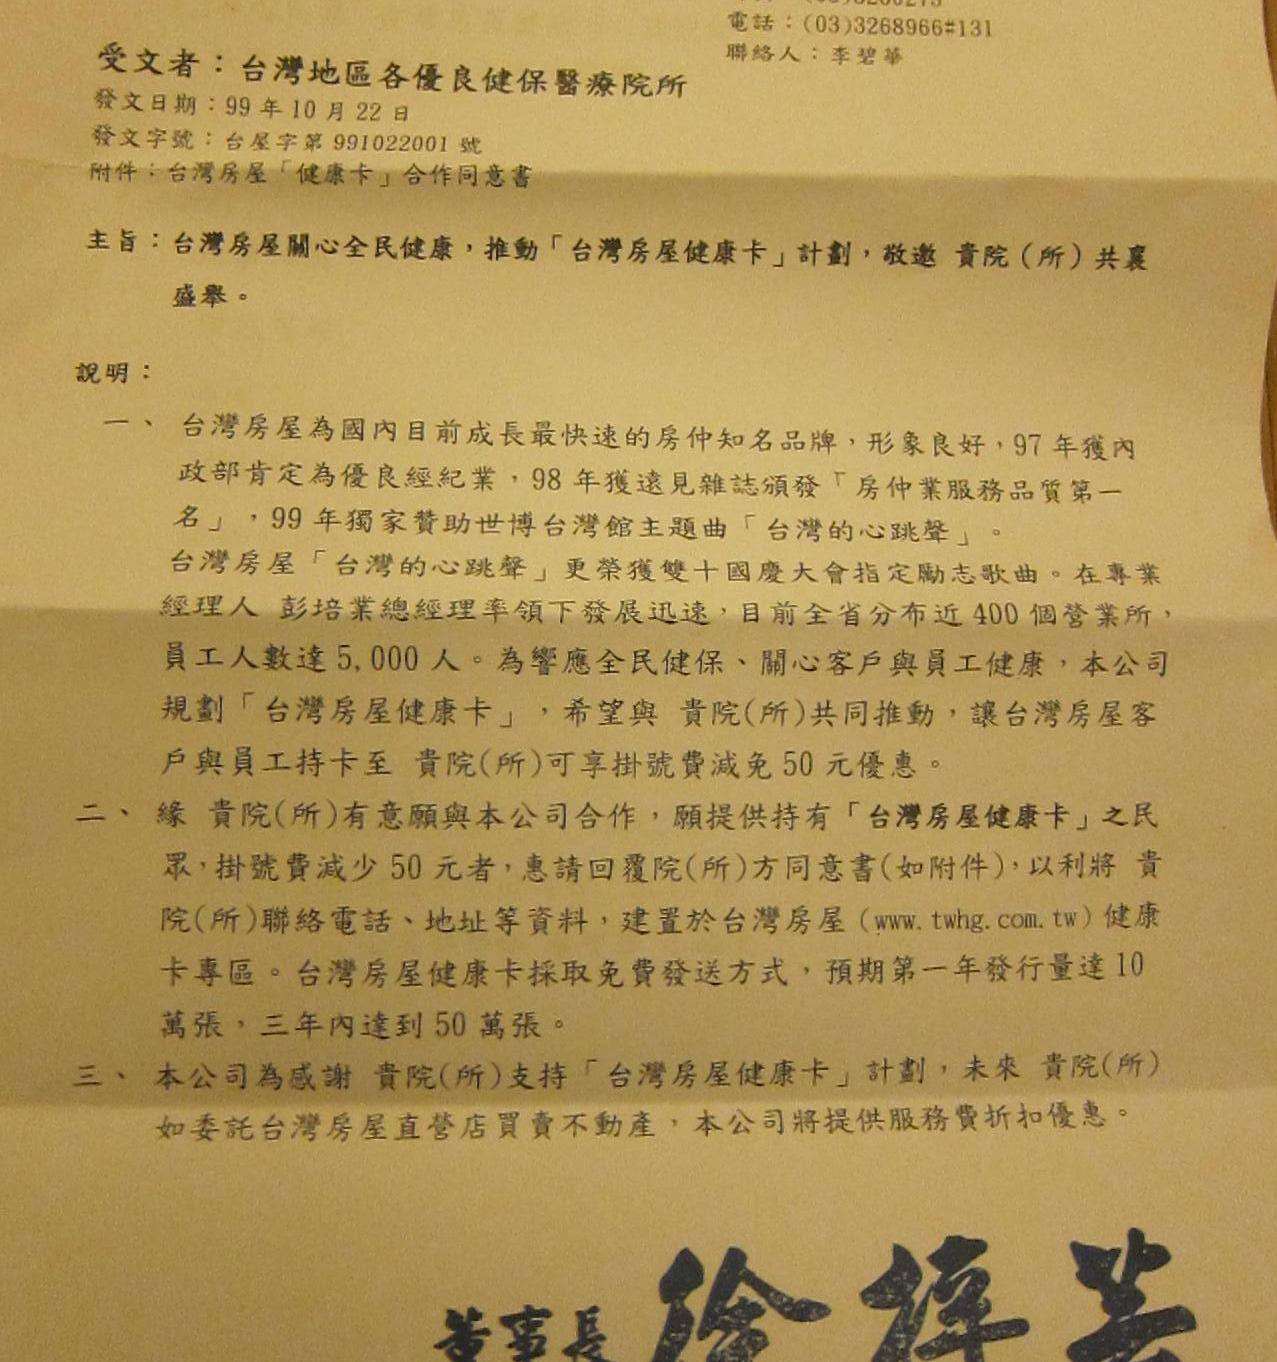 電話：(03)3268966#131
聯絡人：李碧華
受文者：台灣地區各優良健保醫療院所
發文日期：99 年 10 月 22 日
發文字號：台屋字第 991022001 號
附件：台灣房屋「健康卡」合作同意書
主旨：台灣房屋關心全民健康，推動「台灣房屋健康卡」計劃，敬邀 貴院（所）共襄
盛舉。
說明：
一、 台灣房屋為國內目前成長最快速的房仲知名品牌，形象良好，97 年獲內
政部肯定為優良經紀業，98 年獲遠見雜誌頒發「房仲業服務品質第一
名」，99 年獨家贊助世博台灣館主題曲「台灣的心跳聲」。
台灣房屋「台灣的心跳聲」更榮獲雙十國慶大會指定勵志歌曲。在專業
經理人 彭培業總經理率領下發展迅速，目前全省分布近 400 個營業所，
員工人數達 5,000 人。為響應全民健保、關心客戶與員工健康，本公司
規劃「台灣房屋健康卡」，希望與 貴院(所)共同推動，讓台灣房屋客
戶與員工持卡至 貴院(所)可享掛號費減免 50 元優惠。
二、 緣 貴院(所)有意願與本公司合作，願提供持有「台灣房屋健康卡」之民
眾，掛號費減少 50 元者，惠請回覆院(所)方同意書(如附件)，以利將 貴
院(所)聯絡電話、地址等資料，建置於台灣房屋（www.twhg.com.tw）健康
卡專區。台灣房屋健康卡採取免費發送方式，預期第一年發行量達 10
萬張，三年內達到 50 萬張。
三、 本公司為感謝 貴院(所)支持「台灣房屋健康卡」計劃，未來 貴院(所)
如委託台灣房屋直營店買賣不動產，本公司將提供服務費折扣優惠。
董事長